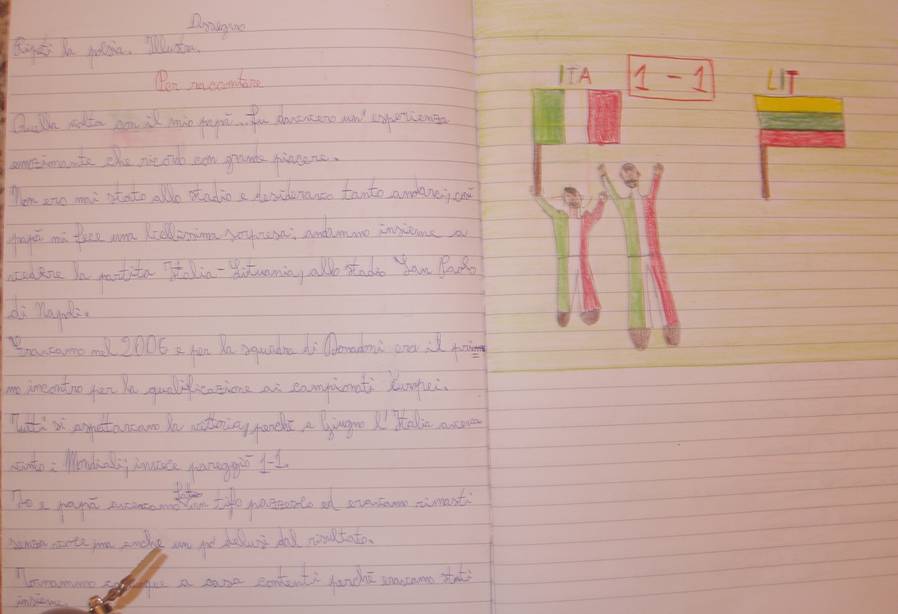 Disegno
Ripeti la poesia. Illustra.
Per raccontare
Quella volta con il mio papà... fu davvero un'esperienza
emozionante che ricordo con grande piacere.
Non ero mai stato allo stadio e desideravo tanto andarci, così
papà mi fece una bellissima sorpresa; andammo insieme a
vedere la partita Italia-Lituania, allo stadio San Paolo
di Napoli.
Eravamo nel 2006 e per la squadra di Donadoni era il pri
mo incontro per la qualificazione ai campionati Europei.
Tutti si aspettavano la vittoria, perchè a Giugno l'Italia aveva
vinto i Mondiali; invece pareggiò 1-1.
Io e papà avevamo fatto un tifo pazzesco ed eravamo rimasti
senza voce ma anche un pò delusi dal risultato.
Tornammo a casa contenti perchè eravamo stati
insieme
ITA
1-1
LIT